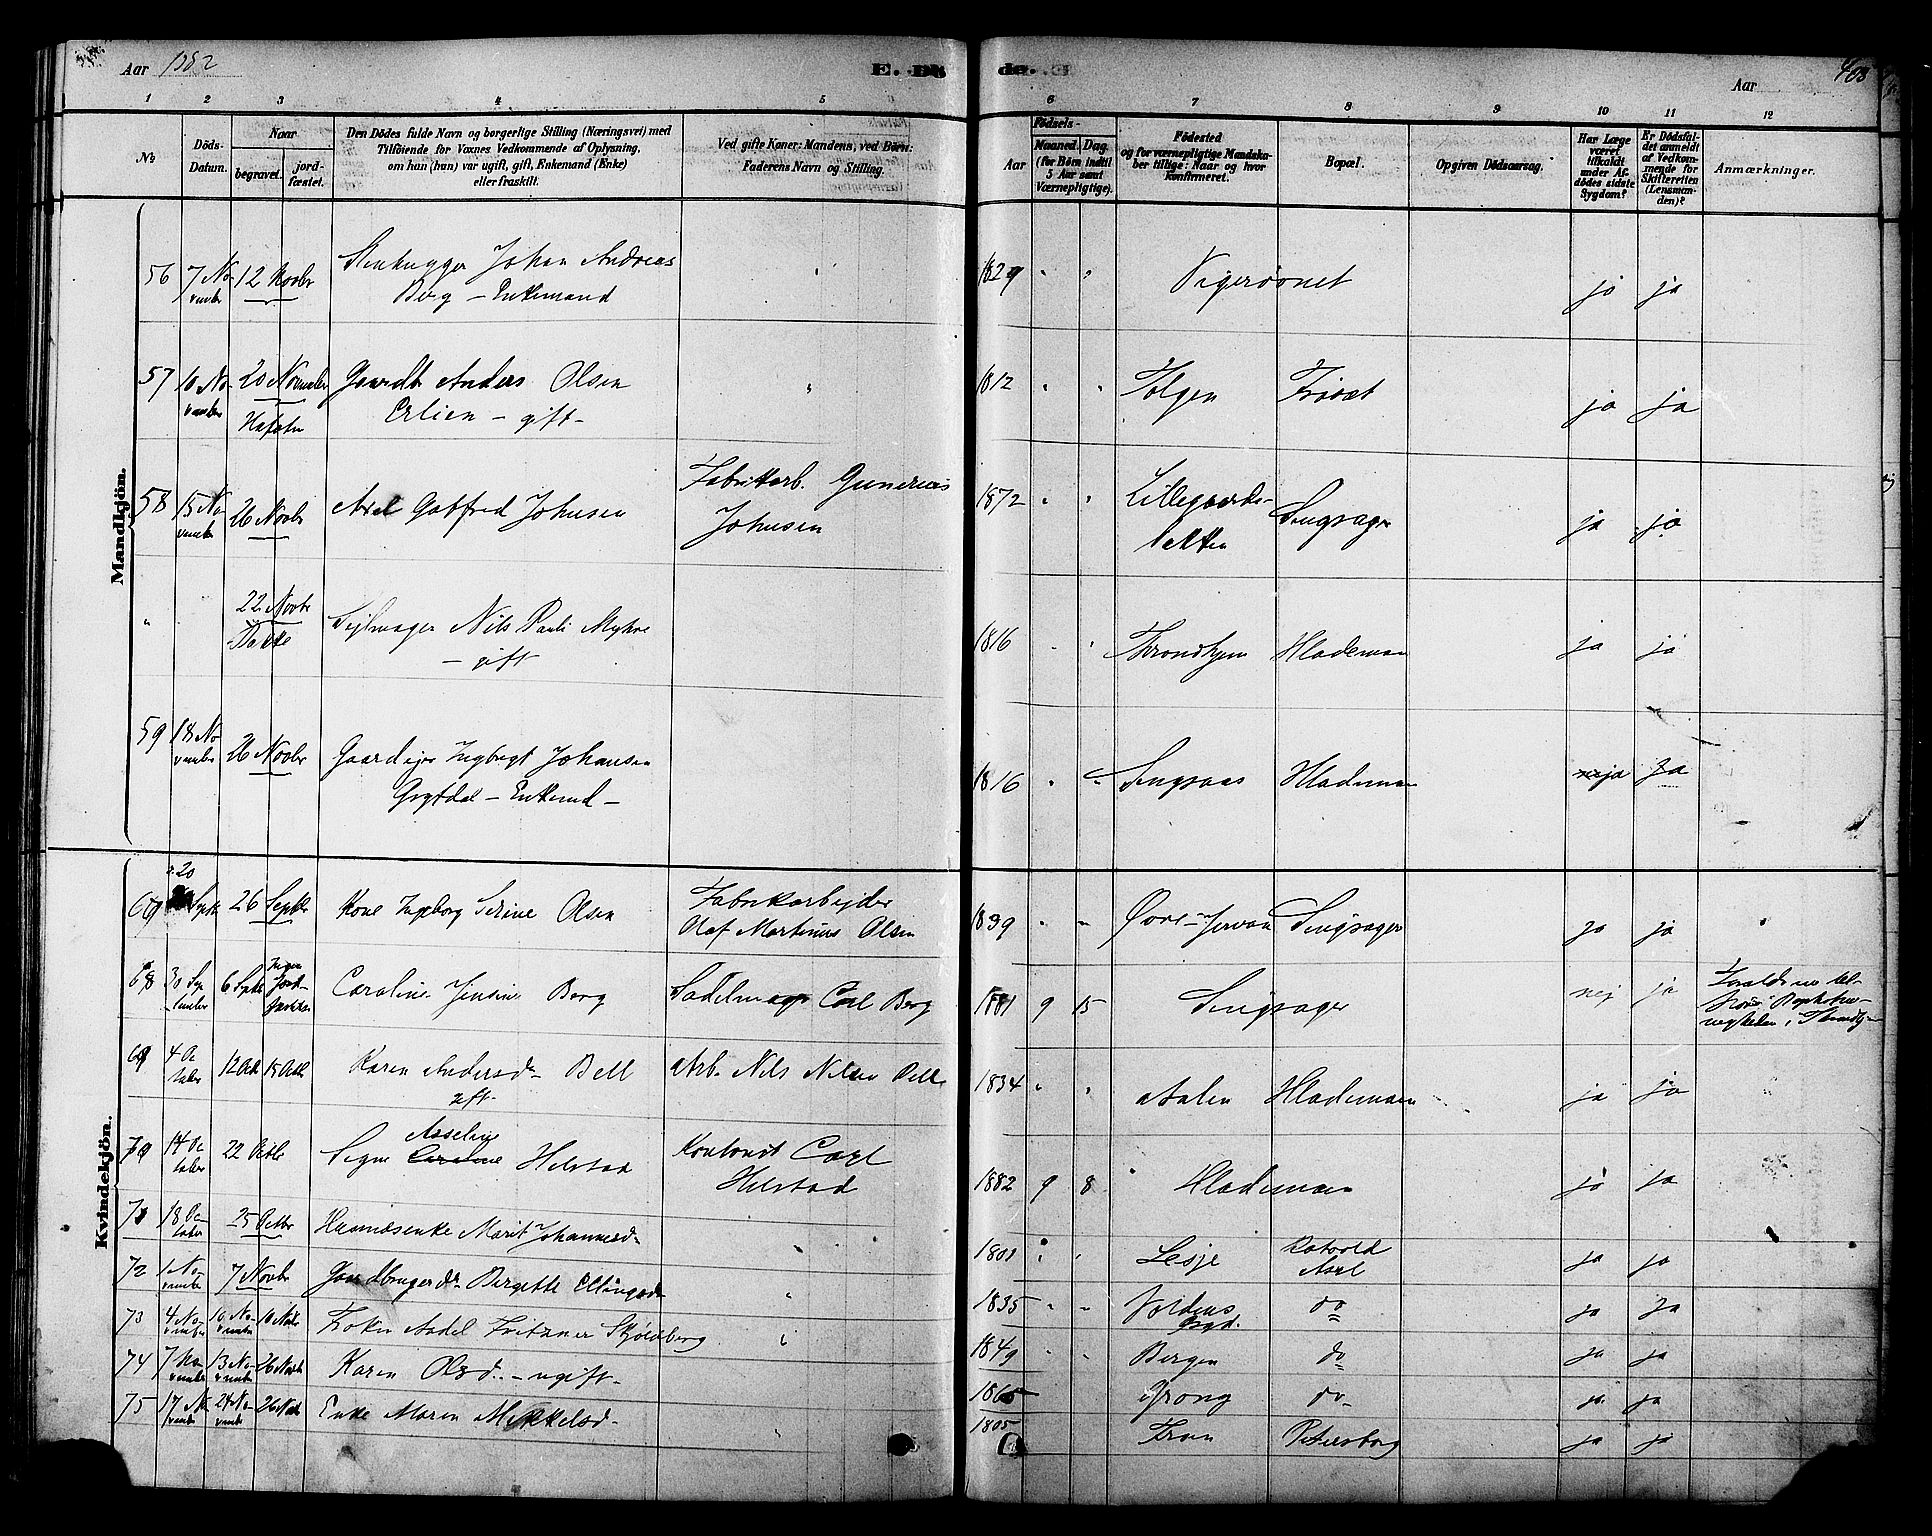 Aar 1882
E. Dö
de.
Aar
408
1 2 3 4 5 6 7 8 9 10 11 12
№
Döds-Datum.
Naar
begravet.
jord-fæstet.
Den Dödes fulde Navn og borgerlige Stilling (Næringsvei) med
Tilföiende for Voxnes Vedkommende af Oplysning,
om han (hun) var ugift, gift, Enkemand (Enke)
eller fraskilt.
Ved gifte Koner: Mandens, ved Börn:
Faderens Navn og Stilling.
Födsels-
Aar
Maaned. Dag.
(for Börn indtil
5 Aar samt
Værnepligtige).
Födested
og for værnepligtige Mandska-
ber tillige: Naar og hvor
konfirmeret.
Bopæl.
Opgiven Dödsaarsag.
Har Læge
været
tilkaldt
under Af-
dödes sidste
Sygdom?
Er Dödsfal-
det anmeldt
af Vedkom-
mende for
Skifteretten
(Lensman-
den)?
Anmærkninger.
Mandkjön.
56 7 No-vember 12 Novbr Stenhugger Johan Andreas
Berg – Enkemand
1829 " " Vigerønet ja ja
57 10 No-vember 20 November Gaardbr Anders Olsen
Erlien – gift –
1812 " " Tolgen ja ja
58 15 No-vember 26 Novbr Axel Gotfred Johnsen Fabrikarb. Gunerius
Johnsen
1872 " " Lillegaards-
bakken Singsager ja ja
" 22 Novbr
Bakke
Seilmager Nils Pauli Myhre
– gift
1816 " " Throndhjem Hlademoen ja ja
59 18 No-vember 26 Novbr Gaardejer Ingbrigt Johansen
Grytdal – Enkemd –
1816 " " Singsaas Hlademoen ja ja
Kvindekjön.
67 20 Septbr 26 Septbr Kone Ingeborg Serine Olsen Fabrikarbejder
Olaf Martinus Olsen
1839 " " Øvre- Singsager ja ja
68 30 Sep-tember 6 Septbr Ingen
Jord-
fæstelse
Caroline Jensine Berg Sadelmager Carl Berg
1881 9 15 Singsager nej ja Forældrene til-
hører Baptistme-
nigheden i Trondhj
69 4 Oc-tober 12 Octb 15 Octb Karen Andersd– Bell
gift– Arb. Nils Nilsen Bell
1834 " " Aalen Hlademoen ja ja
70 14 Oc-tober 22 Octb Signe Asseline
Caroline Helstad Kontorist Carl
Helstad
1882 9 8 Hlademoen ja ja
71 18 Oc-tober 25 Octbr Huusmandsenke Marit Johannesd–
1801 " " Lesje ja ja
72 1 No-vember 7 Novbr Gaardbrugerdr Birgitte Ellingsd–
1835 " " do ja ja
73 4 No-vember 10 No-vember 10 Novbr Frøken Andel Fritzner Skjoldberg
1849 " " Bergen do ja ja
74 7 No-vember 13 No-vember 26 Novb Karen Olsd. – ugift–
1865 Grong do– ja ja
75 17 No-vember 24 No-vember 26 Novb Enke Maren Mikkelsd–
1805 Petersborg ja ja